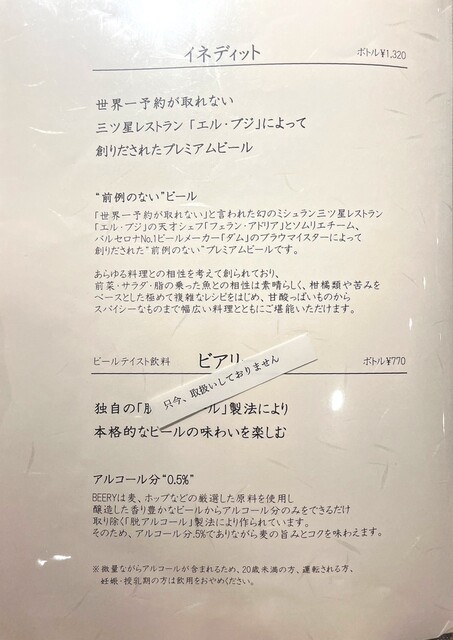 イネディット ボトル¥1,320
世界一予約が取れない
三ツ星レストラン「エル・ブジ」によって
創りだされたプレミアムビール
“前例のない”ビール
「世界一予約が取れない」と言われた幻のミシュラン三ツ星レストラン
「エル・ブジ」の天才シェフ「フェラン・アドリア」とソムリエチーム、
バルセロナNo.1ビールメーカー「ダム」のブラウマイスターによって
創りだされた“前例のない”プレミアムビールです。
あらゆる料理との相性を考えて創られており、
前菜・サラダ・脂の乗った魚との相性は素晴らしく、柑橘類や苦みを
ベースとした極めて複雑なレシピをはじめ、甘酸っぱいものから
スパイシーなものまで幅広い料理とともにご堪能いただけます。
ビールテイスト飲料 ビアリ ボトル¥770
只今、取扱いしておりません
独自の「脱 ル」製法により
本格的なビールの味わいを楽しむ
アルコール分“0.5%”
BEERYは麦、ホップなどの厳選した原料を使用し
醸造した香り豊かなビールからアルコール分のみをできるだけ
取り除く「脱アルコール」製法により作られています。
そのため、アルコール分.5%でありながら麦の旨みとコクを味わえます。
※微量ながらアルコールが含まれるため、20歳未満の方、運転される方、
妊娠・授乳期の方は飲用をおやめください。